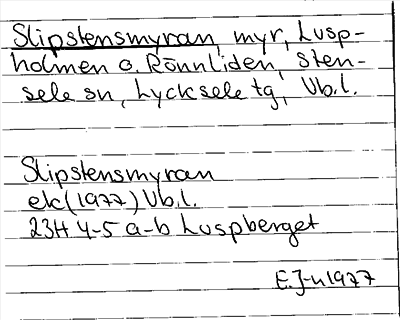 Slipstensmyran, myr, Lusp-
holmen o. Rönnliden, Sten-
sele sn, Lycksele tg, Vb.l.
Slipstensmyran
ek (1977) Vb.l.
23H 4-5 a-b Luspberget
E.J-n 1977